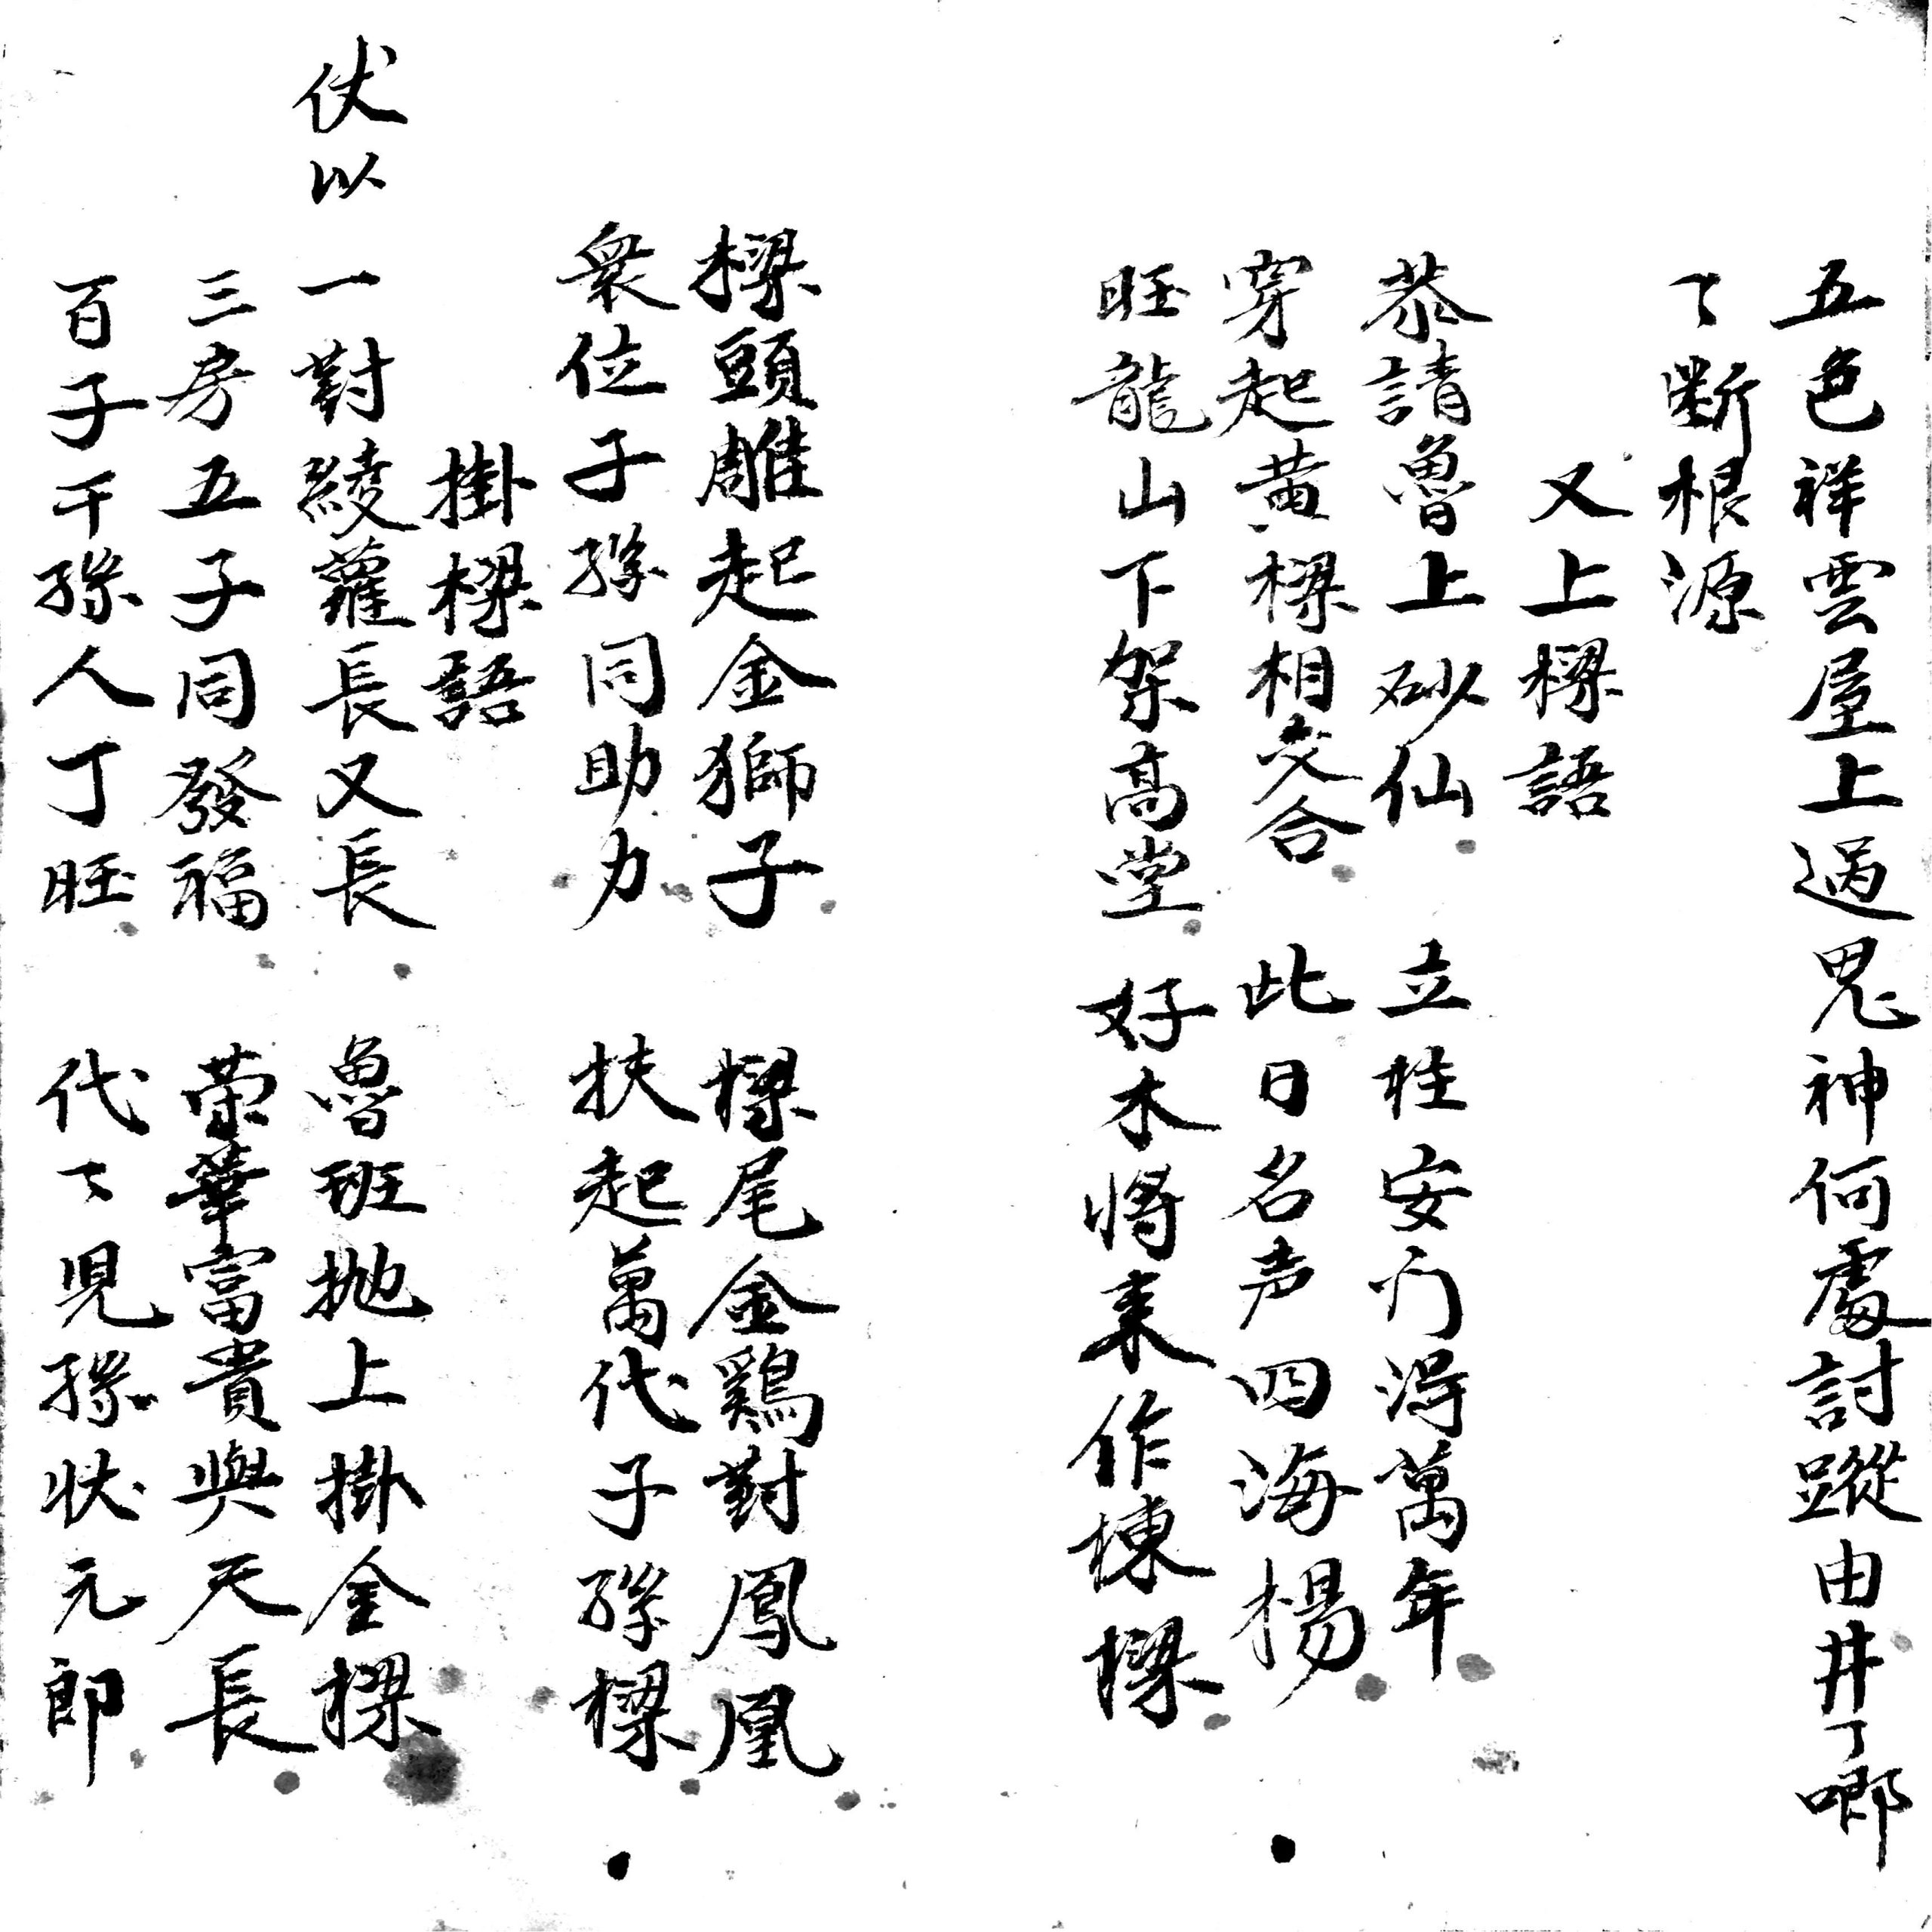 五色祥雲屋上過鬼神何處討蹤由井丁啣
〻断根源
又上樑語
恭請魯上砂仙 立柱安门得萬年
穿起黄樑相交合 此日名声四海楊
旺龍山下架高堂 好木将来作棟樑
樑頭雕起金獅子 樑尾金鷄對鳳凰
衆位子孫同助力 扶起萬代子孫樑
掛樑語
伏以 一對綾蘿長又長 魯班拋上掛金樑
三房五子同發福 荣華富貴與天長
百子千孫人丁旺 代〻児孫状元郎